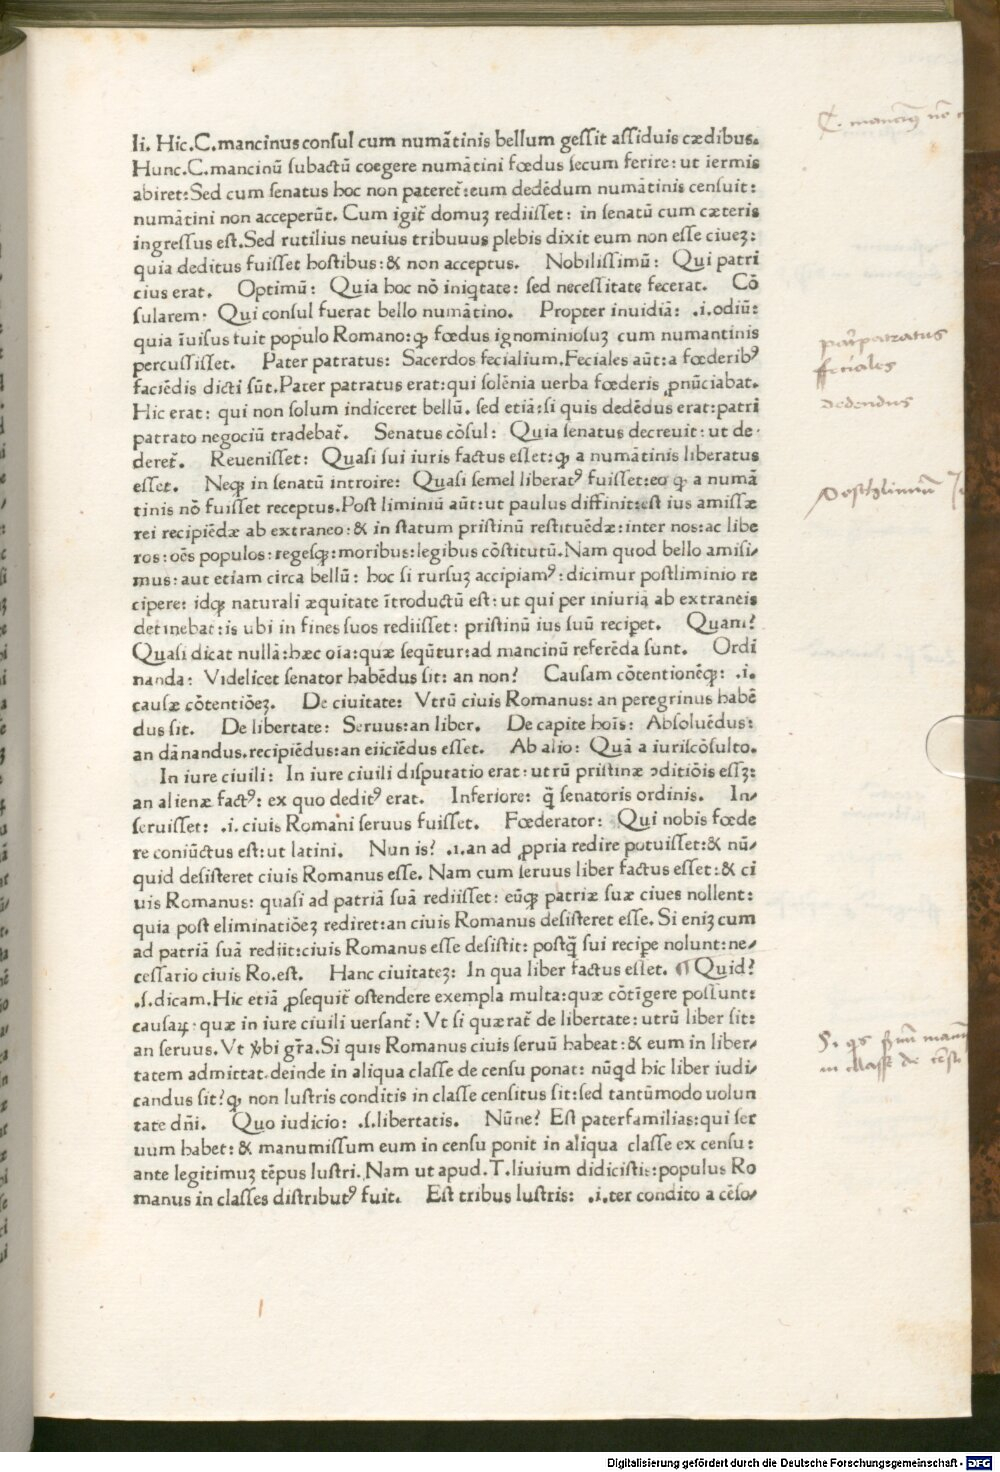 li. Hic.C.mancinus consul cum numātinis bellum gessit assiduis cædibus.
Hunc.C.mancinū subactū coegere numātini fœdus secum ferire: ut iermis
abiret:Sed cum senatus hoc non pateret̄:eum dedēdum numātinis censuit:
numātini non acceperūt. Cum igit̄ domuȝ rediisset: in senatū cum cæteris
ingressus est.Sed rutilius neuius tribuuus plebis dixit eum non esse ciueȝ:
quia deditus fuisset hostibus:& non acceptus. Nobilissimū: Qui patri
cius erat. Optimū: Quia hoc nō iniq̄tate: sed necessitate fecerat. Cō
sularem: Qui consul fuerat bello numātino. Propter inuidiā: .i.odiū:
quia īuisus fuit populo Romano:ꝙ fœdus ignominiosuȝ cum numantinis
percussisset. Pater patratus: Sacerdos fecialium.Feciales aūt:a fœderibꝰ
faciēdis dicti sūt.Pater patratus erat:qui solēnia uerba fœderis ꝓnūciabat.
Hic erat: qui non solum indiceret bellū. sed etiā:si quis dedēdus erat:patri
patrato negociū tradebat̄. Senatus cōsul: Quia senatus decreuit: ut de-
deret̄. Reuenisset: Quasi sui iuris factus esset:ꝙ a numātinis liberatus
esset. Neqꝫ in senatū introire: Quasi semel liberatꝰ fuisset:eo ꝙ a numā
tinis nō fuisset receptus.Post liminiū aūt:ut paulus diffinit:est ius amissæ
rei recipiēdæ ab extraneo:& in statum pristinū restituēdæ:inter nos:ac libe
ros:oēs populos:regesqꝫ:moribus:legibus cōstitutū.Nam quod bello amisi/
mus:aut etiam circa bellū: hoc si rursuȝ accipiamꝰ:dicimur postliminio re
cipere: idqꝫ naturali æquitate ītroductū est:ut qui per iniuriā ab extraneis
detinebat:is ubi in fines suos rediisset: pristinū ius suū recipet. Quam?
Quasi dicat nullā:hæc oīa:quæ seqūtur:ad mancinū referēda sunt. Ordī
nanda: Videlicet senator habēdus sit: an non? Causam cōtentionēqꝫ: .i.
causæ cōtentiōeȝ. De ciuitate: Vtrū ciuis Romanus: an peregrinus habē
dus sit. De libertate: Seruus:an liber. De capite hoīs: Absoluēdus:
an dānandus.recipiēdus:an eiiciēdus esset. Ab alio: Quā a iuriscōsulto.
In iure ciuili: In iure ciuili disputatio erat:utrū pristinæ ↄditiōis essȝ:
an alienæ factꝰ: ex quo deditꝰ erat. Inferiore: q̄ senatoris ordinis. In/
seruisset: .i. ciuis Romani seruus fuisset. Fœderator: Qui nobis fœde
re coniūctus est:ut latini. Nun is? .i.an ad ꝓpria redire potuisset:& nū/
quid desisteret ciuis Romanus esse. Nam cum seruus liber factus esset:& ci
uis Romanus: quasi ad patriā suā rediisset: eūqꝫ patriæ suæ ciues nollent:
quia post eliminatiōeȝ rediret:an ciuis Romanus desisteret esse. Si eniȝ cum
ad patriā suā rediit:ciuis Romanus esse desistit: postq̄ sui recipe nolunt:ne/
cessario ciuis Ro.est. Hanc ciuitateȝ: In qua liber factus esset. ¶ Quid?
.s.dicam.Hic etiā ꝓsequit̄ ostendere exempla multa:quæ cōtīgere possunt:
causaꝝ: quæ in iure ciuili uersant̄: Vt si quærat̄ de libertate: utrū liber sit:
an seruus. Vt v̆bi gr̄a.Si quis Romanus ciuis seruū habeat:& eum in liber/
tatem admittat.deinde in aliqua classe de censu ponat: nūq̄d hic liber iudi/
candus sit?ꝙ non lustris conditis in classe censitus sit:sed tantūmodo uolun
tate dn̄i. Quo iudicio: .s.libertatis. Nūne? Est paterfamilias:qui ser
uum habet:& manumissum eum in censu ponit in aliqua classe ex censu:
ante legitimuȝ tēpus lustri. Nam ut apud.T.liuium didicistis:populus Ro
manus in classes distributꝰ fuit. Est tribus lustris: .i.ter condito a cēso/
patratus
feciales
dedendus
Digitalisierung gefördert durch die Deutsche Forschungsgemeinschaft - DFG